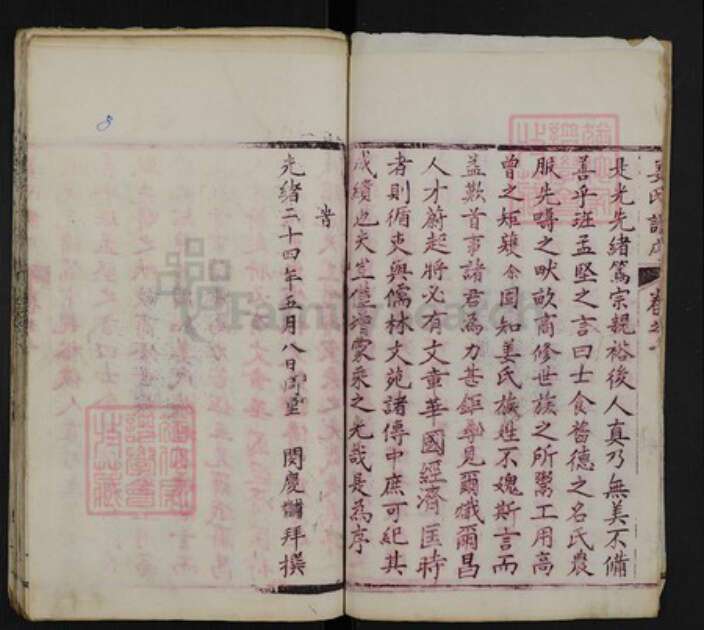 姜氏譜序
是光先緒篤宗親裕後人真乃無美不備
善乎班孟堅之言曰士食舊德之名氏農
服先疇之畎畝商修世族之所鬻工用高
曾之矩矱令固知姜氏族姓不媿斯言而
益歎首事諸君為力甚鉅率見爾熾爾昌
人才蔚起將必有文章華國經濟匡時
者則循吏與儒林文苑諸傳中庶可紀其
成績也夫豈僅增蒙采之光哉是為序
峕
光緒二十四年五月八日
閔慶 拜撰
8
FamilySearch